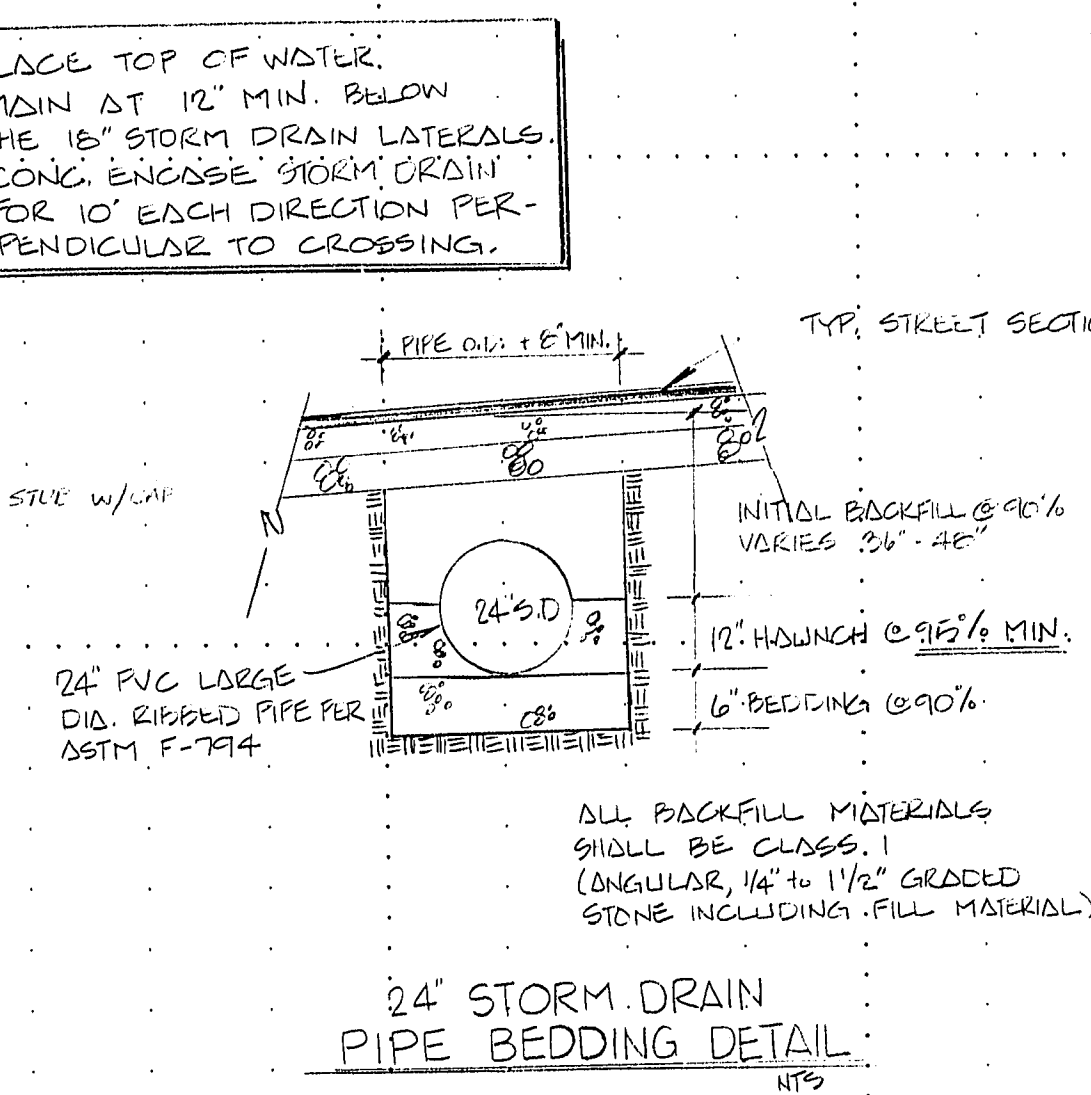 LACE TOP OF WATER.
MAIN AT 12" MIN. BELOW
HE 18" STORM DRAIN LATERALS.
CONC. ENCASE STORM DRAIN
FOR 10' EACH DIRECTION PER-
PENDICULAR TO CROSSING.
TYP. STREET SECTIO
PIPE O.D. + 8" MIN.
STUB W/CAP
INITIAL BACKFILL @ 90%
VARIES 36" - 48"
24" S.D
12" HAUNCH @ 95% MIN.
24" PVC LARGE
DIA. RIBBED PIPE PER
ASTM F-794
6" BEDDING @ 90%
ALL BACKFILL MATERIALS
SHALL BE CLASS. 1
(ANGULAR, 1/4" to 1 1/2" GRADED
STONE INCLUDING FILL MATERIAL)
24" STORM DRAIN
PIPE BEDDING DETAIL
NTS